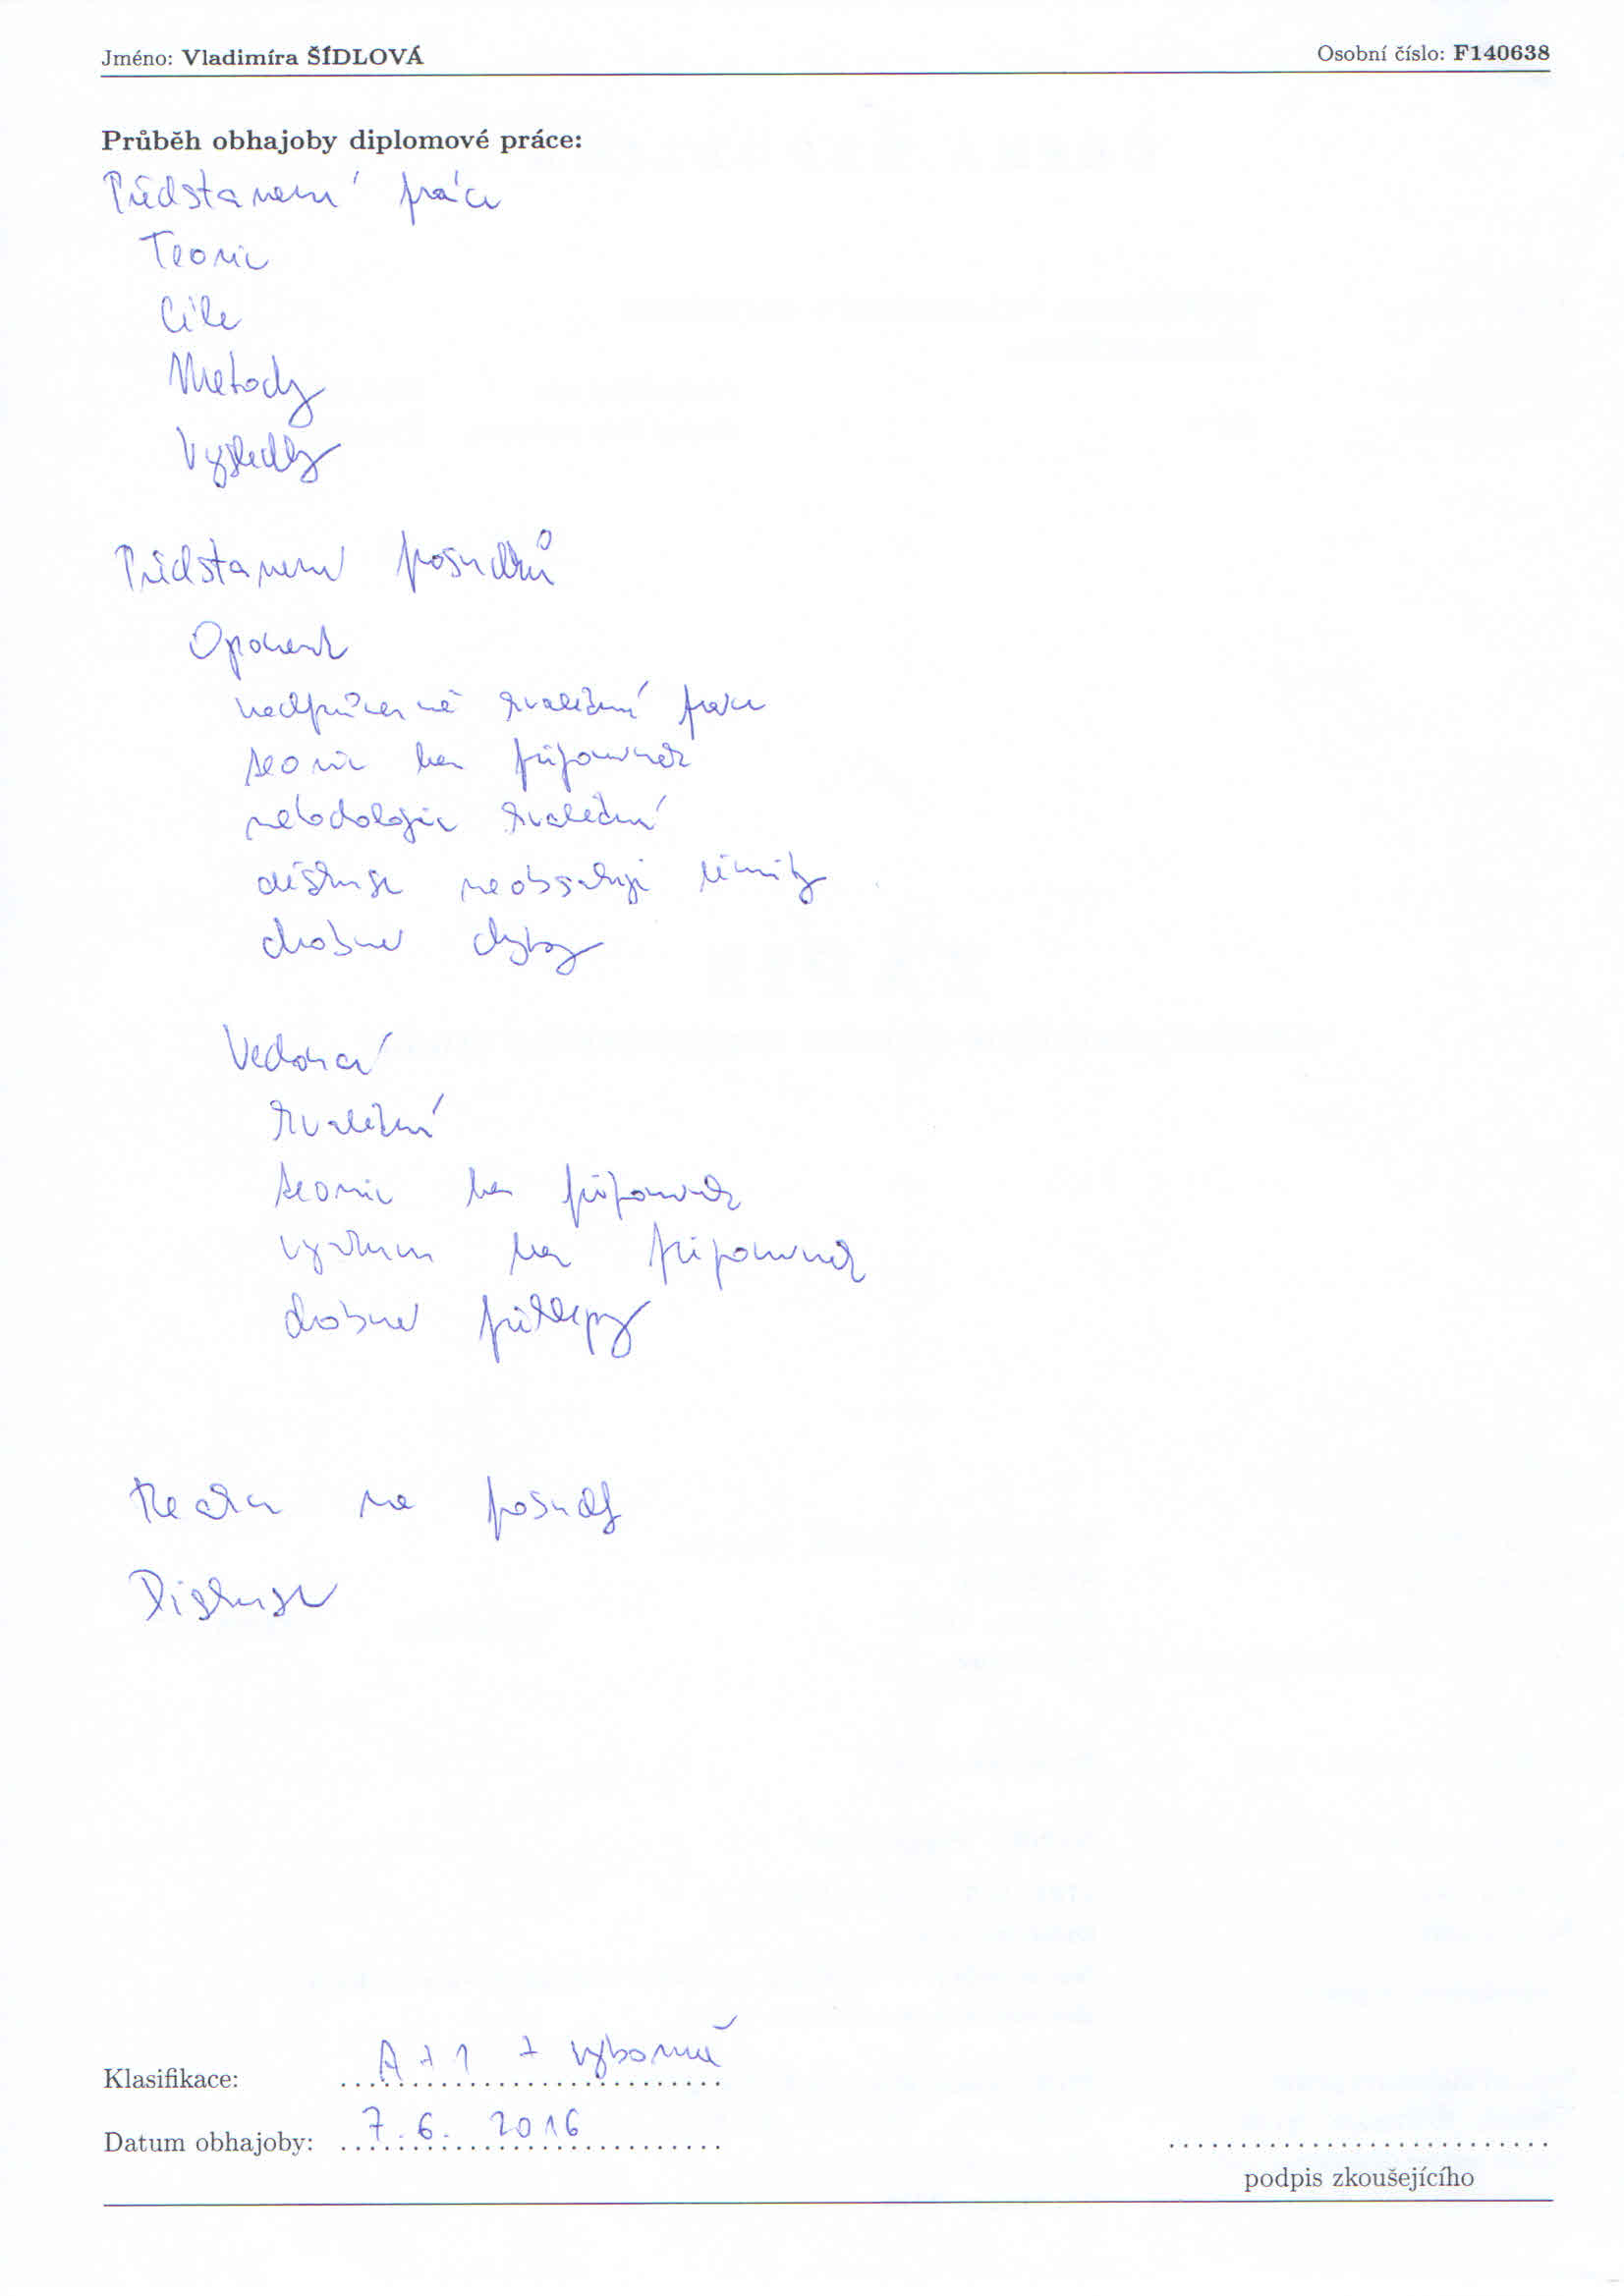 Jméno: Vladimíra ŠÍDLOVÁ
Osobní číslo: F140638
Průběh obhajoby diplomové práce:
Představení práce
Teorie
Cíle
Metody
Výsledky
Představení posudků
Oponent
nadprůměrně zvaliční práce
teorie bez připomínek
metodologie
diskuse neobsahuje limity
drobné chyby
Vedoucí
teorie bez připomínek
výzkum bez připomínek
drobné překlepy
Reakce na posudky
Diskuse
Klasifikace: A + 1 + výborně
Datum obhajoby: 7. 6. 2016
podpis zkoušejícího